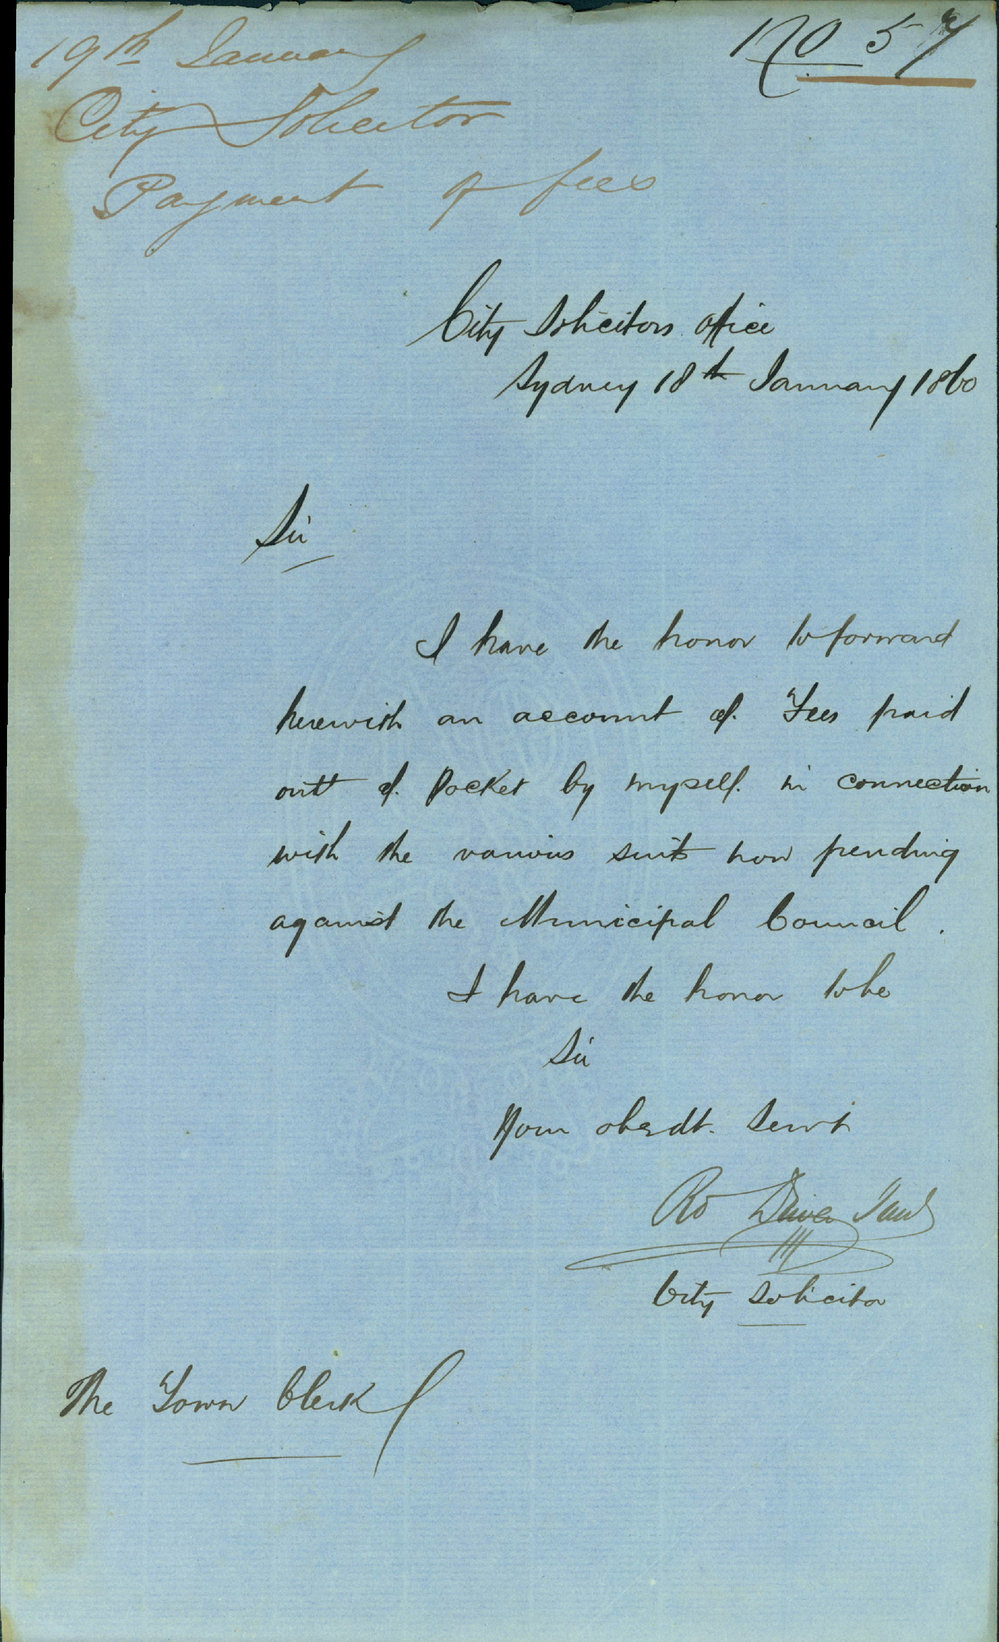 19th January
No 57
City Solicitor
Payment of fees
City Solicitors Office
Sydney 18th January 1860
Sir
I have the honor to forward
herewith an account of Fees paid
outt of Pocket by myself in connection
with the various suits now pending
against the Municipal Council.
I have the honor to be
Sir
Your obedt. Servt
Ro Driver Junr
City Solicitor
The Town Clerk